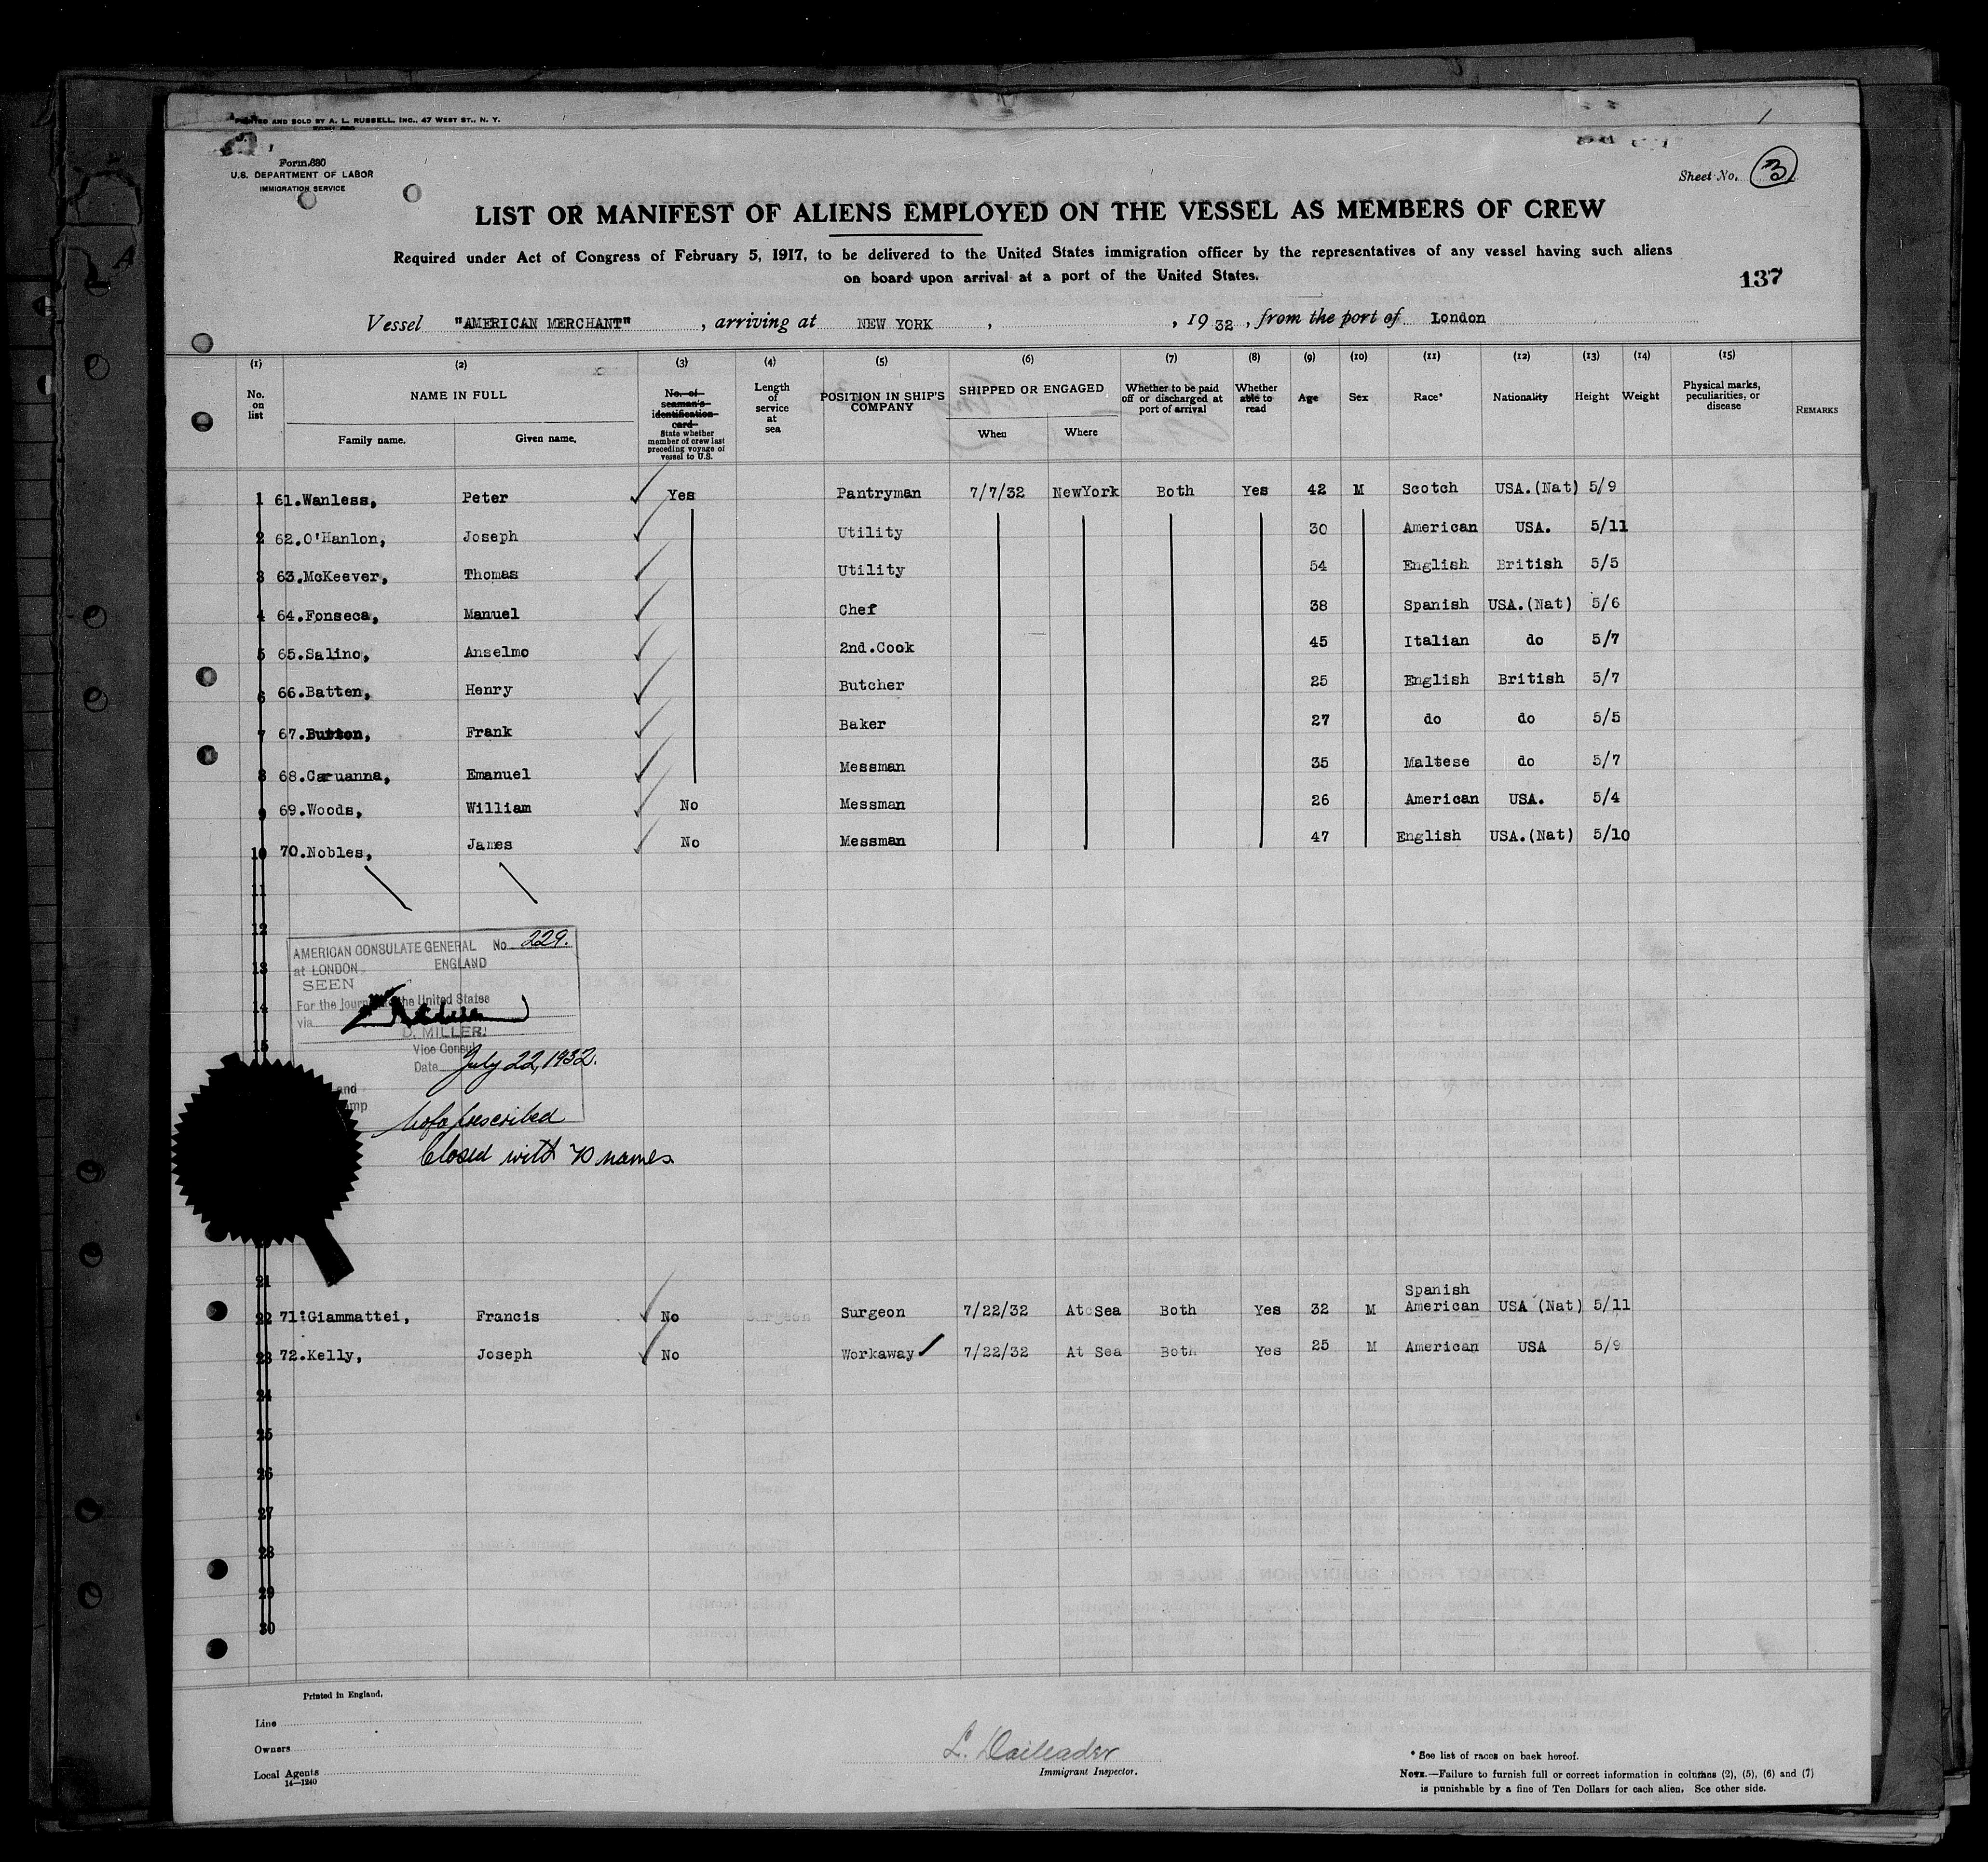 PRINTED AND SOLD BY A. L. RUSSELL, INC., 47 WEST ST., N. Y.
Form 680
U.S. DEPARTMENT OF LABOR
IMMIGRATION SERVICE
Sheet No. 3
LIST OR MANIFEST OF ALIENS EMPLOYED ON THE VESSEL AS MEMBERS OF CREW
Required under Act of Congress of February 5, 1917, to be delivered to the United States immigration officer by the representatives of any vessel having such aliens
on board upon arrival at a port of the United States.
137
Vessel "AMERICAN MERCHANT", arriving at NEW YORK, , 1932, from the port of London
(1) (2) (3) (4) (5) (6) (7) (8) (9) (10) (11) (12) (13) (14) (15)
No. on list
NAME IN FULL
Family name. Given name.
No. of seaman's identification card
State whether member of crew last preceding voyage of vessel to U.S.
Length of service at sea
POSITION IN SHIP'S COMPANY
SHIPPED OR ENGAGED
When Where
Whether to be paid off or discharged at port of arrival
Whether able to read
Age
Sex
Race*
Nationality
Height
Weight
Physical marks, peculiarities, or disease
REMARKS
1 61.Wanless, Peter Yes Pantryman 7/7/32 NewYork Both Yes 42 M Scotch USA.(Nat) 5/9
2 62.O'Hanlon, Joseph Utility 30 American USA. 5/11
3 63.McKeever, Thomas Utility 54 English British 5/5
4 64.Fonseca, Manuel Chef 38 Spanish USA.(Nat) 5/6
5 65.Salino, Anselmo 2nd.Cook 45 Italian do 5/7
6 66.Batten, Henry Butcher 25 English British 5/7
7 67. Frank Baker 27 do do 5/5
8 68.Caruanna, Emanuel Messman 35 Maltese do 5/7
9 69.Woods, William No Messman 26 American USA. 5/4
10 70.Nobles, James No Messman 47 English USA.(Nat) 5/10
11
12
AMERICAN CONSULATE GENERAL No 229.
13
at LONDON ENGLAND
SEEN
14
For the journey to the United States
via
D. MILLER.
15
Vice Consul
Date July 22, 1932.
prescribed
Closed with 70 names
21
22 71.Giammattei, Francis No Surgeon 7/22/32 At Sea Both Yes 32 M Spanish American USA (Nat) 5/11
23 72.Kelly, Joseph No Workaway 7/22/32 At Sea Both Yes 25 M American USA 5/9
24
25
26
27
28
29
30
Printed in England.
Line
Owners
Local Agents
14—1240
L. Daileader
Immigrant Inspector.
* See list of races on back hereof.
NOTE.—Failure to furnish full or correct information in columns (2), (5), (6) and (7)
is punishable by a fine of Ten Dollars for each alien. See other side.